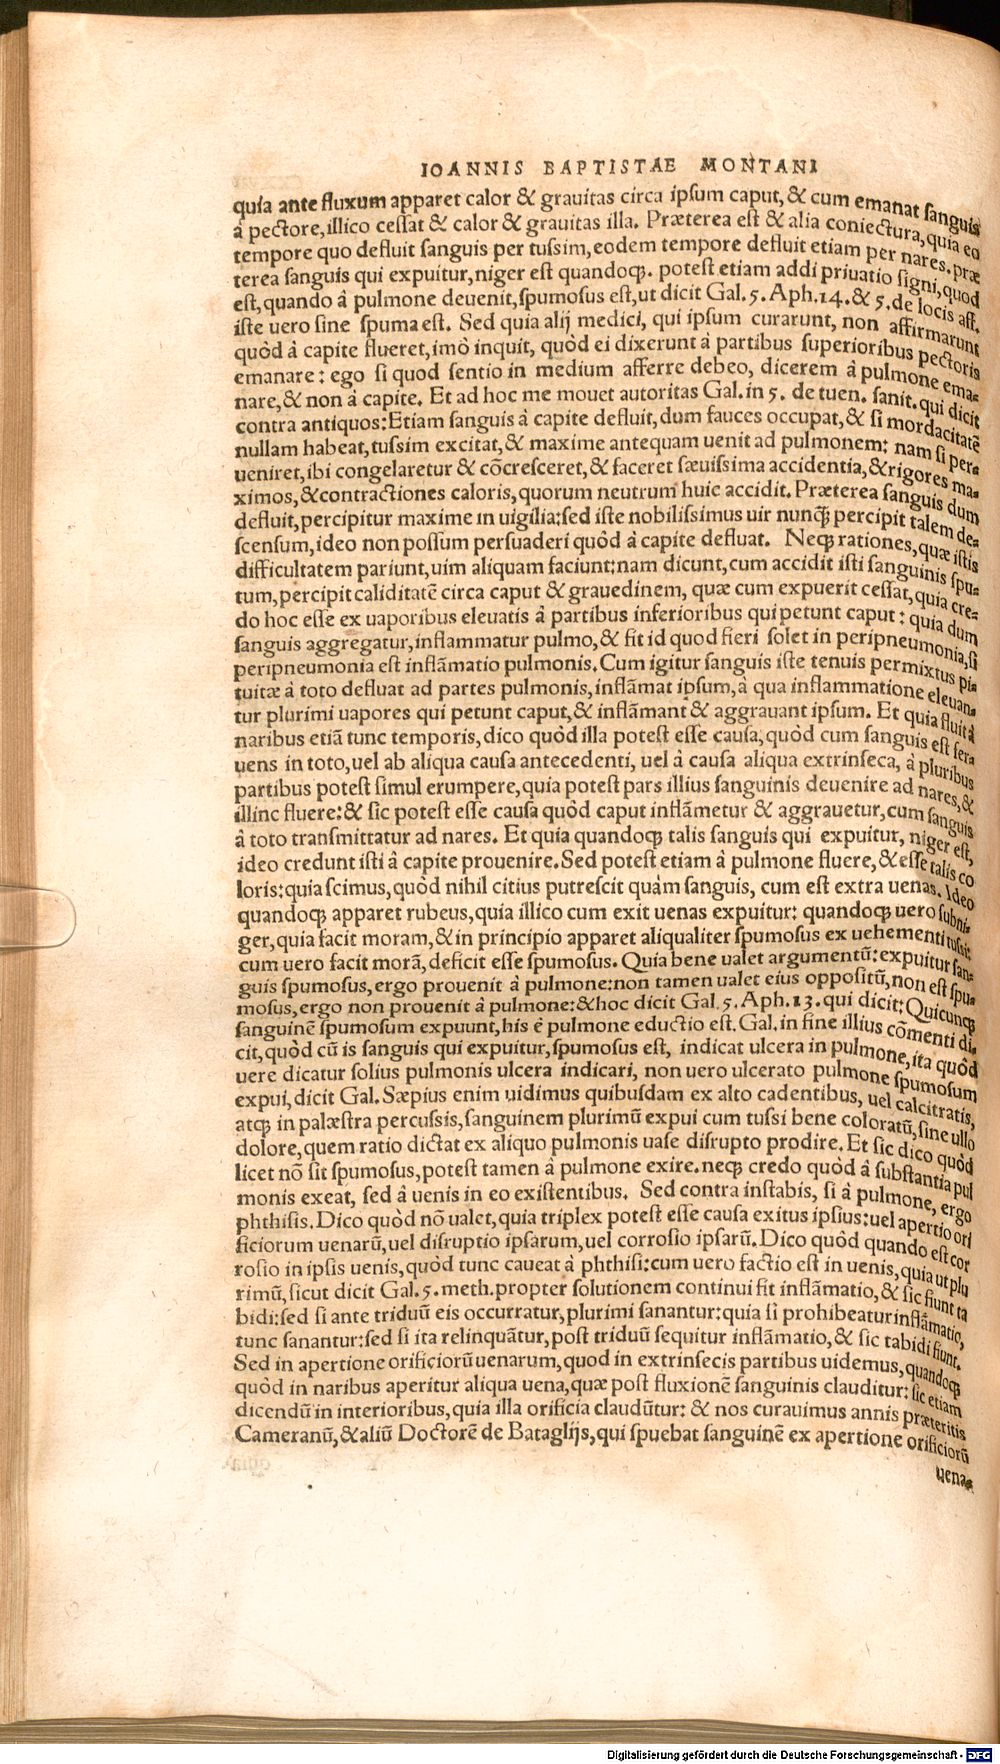 IOANNIS BAPTISTAE MONTANI
quia ante fluxum apparet calor & grauitas circa ipsum caput, & cum emanat sanguis
à pectore, illico cessat & calor & grauitas illa. Præterea est & alia coniectura, quia eo
tempore quo defluit sanguis per tussim, eodem tempore defluit etiam per nares. præ
terea sanguis qui expuitur, niger est quandoq́;. potest etiam addi priuatio signi, quod
est, quando à pulmone deuenit, spumosus est, ut dicit Gal. 5. Aph. 14. & 5. de locis aff.
iste uero sine spuma est. Sed quia alij medici, qui ipsum curarunt, non affirmarunt
quòd à capite flueret, imò inquit, quòd ei dixerunt à partibus superioribus pectoris
emanare: ego si quod sentio in medium afferre debeo, dicerem à pulmone ema-
nare, & non à capite. Et ad hoc me mouet autoritas Gal. in 5. de tuen. sanit. qui dicit
contra antiquos: Etiam sanguis à capite defluit, dum fauces occupat, & si mordacitatē
nullam habeat, tussim excitat, & maxime antequam uenit ad pulmonem: nam si per-
ueniret, ibi congelaretur & cōcresceret, & faceret sæuissima accidentia, & rigores ma-
ximos, & contractiones caloris, quorum neutrum huic accidit. Præterea sanguis dum
defluit, percipitur maxime in uigilia: sed iste nobilissimus uir nunq̃ percipit talem de-
scensum, ideo non possum persuaderi quòd à capite defluat. Neq; rationes, quæ istis
difficultatem pariunt, uim aliquam faciunt: nam dicunt, cum accidit isti sanguinis spu-
tum, percipit caliditatē circa caput & grauedinem, quæ cum expuerit cessat, quia cre-
do hoc esse ex uaporibus eleuatis à partibus inferioribus qui petunt caput: quia dum
sanguis aggregatur, inflammatur pulmo, & fit id quod fieri solet in peripneumonia, si
peripneumonia est inflāmatio pulmonis. Cum igitur sanguis iste tenuis permixtus pi-
tuitæ à toto defluat ad partes pulmonis, inflāmat ipsum, à qua inflammatione eleuan-
tur plurimi uapores qui petunt caput, & inflāmant & aggrauant ipsum. Et quia fluit à
naribus etiā tunc temporis, dico quòd illa potest esse causa, quòd cum sanguis est fer-
uens in toto, uel ab aliqua causa antecedenti, uel à causa aliqua extrinseca, à pluribus
partibus potest simul erumpere, quia potest pars illius sanguinis deuenire ad nares, &
illinc fluere: & sic potest esse causa quòd caput inflāmetur & aggrauetur, cum sanguis
à toto transmittatur ad nares. Et quia quandoq; talis sanguis qui expuitur, niger est,
ideo credunt isti à capite prouenire. Sed potest etiam à pulmone fluere, & esse talis co
loris: quia scimus, quòd nihil citius putrescit quàm sanguis, cum est extra uenas. Ideo
quandoq; apparet rubeus, quia illico cum exit uenas expuitur: quandoq; uero subni-
ger, quia facit moram, & in principio apparet aliqualiter spumosus ex uehementi tussi:
cum uero facit morā, deficit esse spumosus. Quia bene ualet argumentū: expuitur san-
guis spumosus, ergo prouenit à pulmone: non tamen ualet eius oppositū, non est spu-
mosus, ergo non prouenit à pulmone: & hoc dicit Gal. 5. Aph. 13. qui dicit: Quicunq;
sanguinē spumosum expuunt, his è pulmone eductio est. Gal. in fine illius cōmenti di-
cit, quòd cū is sanguis qui expuitur, spumosus est, indicat ulcera in pulmone, ita quòd
uere dicatur solius pulmonis ulcera indicari, non uero ulcerato pulmone spumosum
expui, dicit Gal. Sæpius enim uidimus quibusdam ex alto cadentibus, uel calcitratis,
atq; in palæstra percussis, sanguinem plurimū expui cum tussi bene coloratū, sine ullo
dolore, quem ratio dictat ex aliquo pulmonis uase disrupto prodire. Et sic dico quòd
licet nō sit spumosus, potest tamen à pulmone exire. neq; credo quòd à substantia pul
monis exeat, sed à uenis in eo existentibus. Sed contra instabis, si à pulmone, ergo
phthisis. Dico quòd nō ualet, quia triplex potest esse causa exitus ipsius: uel apertio ori
ficiorum uenarū, uel disruptio ipsarum, uel corrosio ipsarū. Dico quòd quando est cor
rosio in ipsis uenis, quòd tunc caueat à phthisi: cum uero factio est in uenis, quia ut plu
rimū, sicut dicit Gal. 5. meth. propter solutionem continui fit inflāmatio, & sic fiunt ta
bidi: sed si ante triduū eis occurratur, plurimi sanantur: quia si prohibeatur inflāmatio,
tunc sanantur: sed si ita relinquātur, post triduū sequitur inflāmatio, & sic tabidi fiunt.
Sed in apertione orificiorū uenarum, quod in extrinsecis partibus uidemus, quandoq;
quòd in naribus aperitur aliqua uena, quæ post fluxionē sanguinis clauditur: sic etiam
dicendū in interioribus, quia illa orificia claudūtur: & nos curauimus annis præteritis
Cameranū, & aliū Doctorē de Bataglijs, qui spuebat sanguinē ex apertione orificiorū
uena-
Digitalisierung gefördert durch die Deutsche Forschungsgemeinschaft - DFG